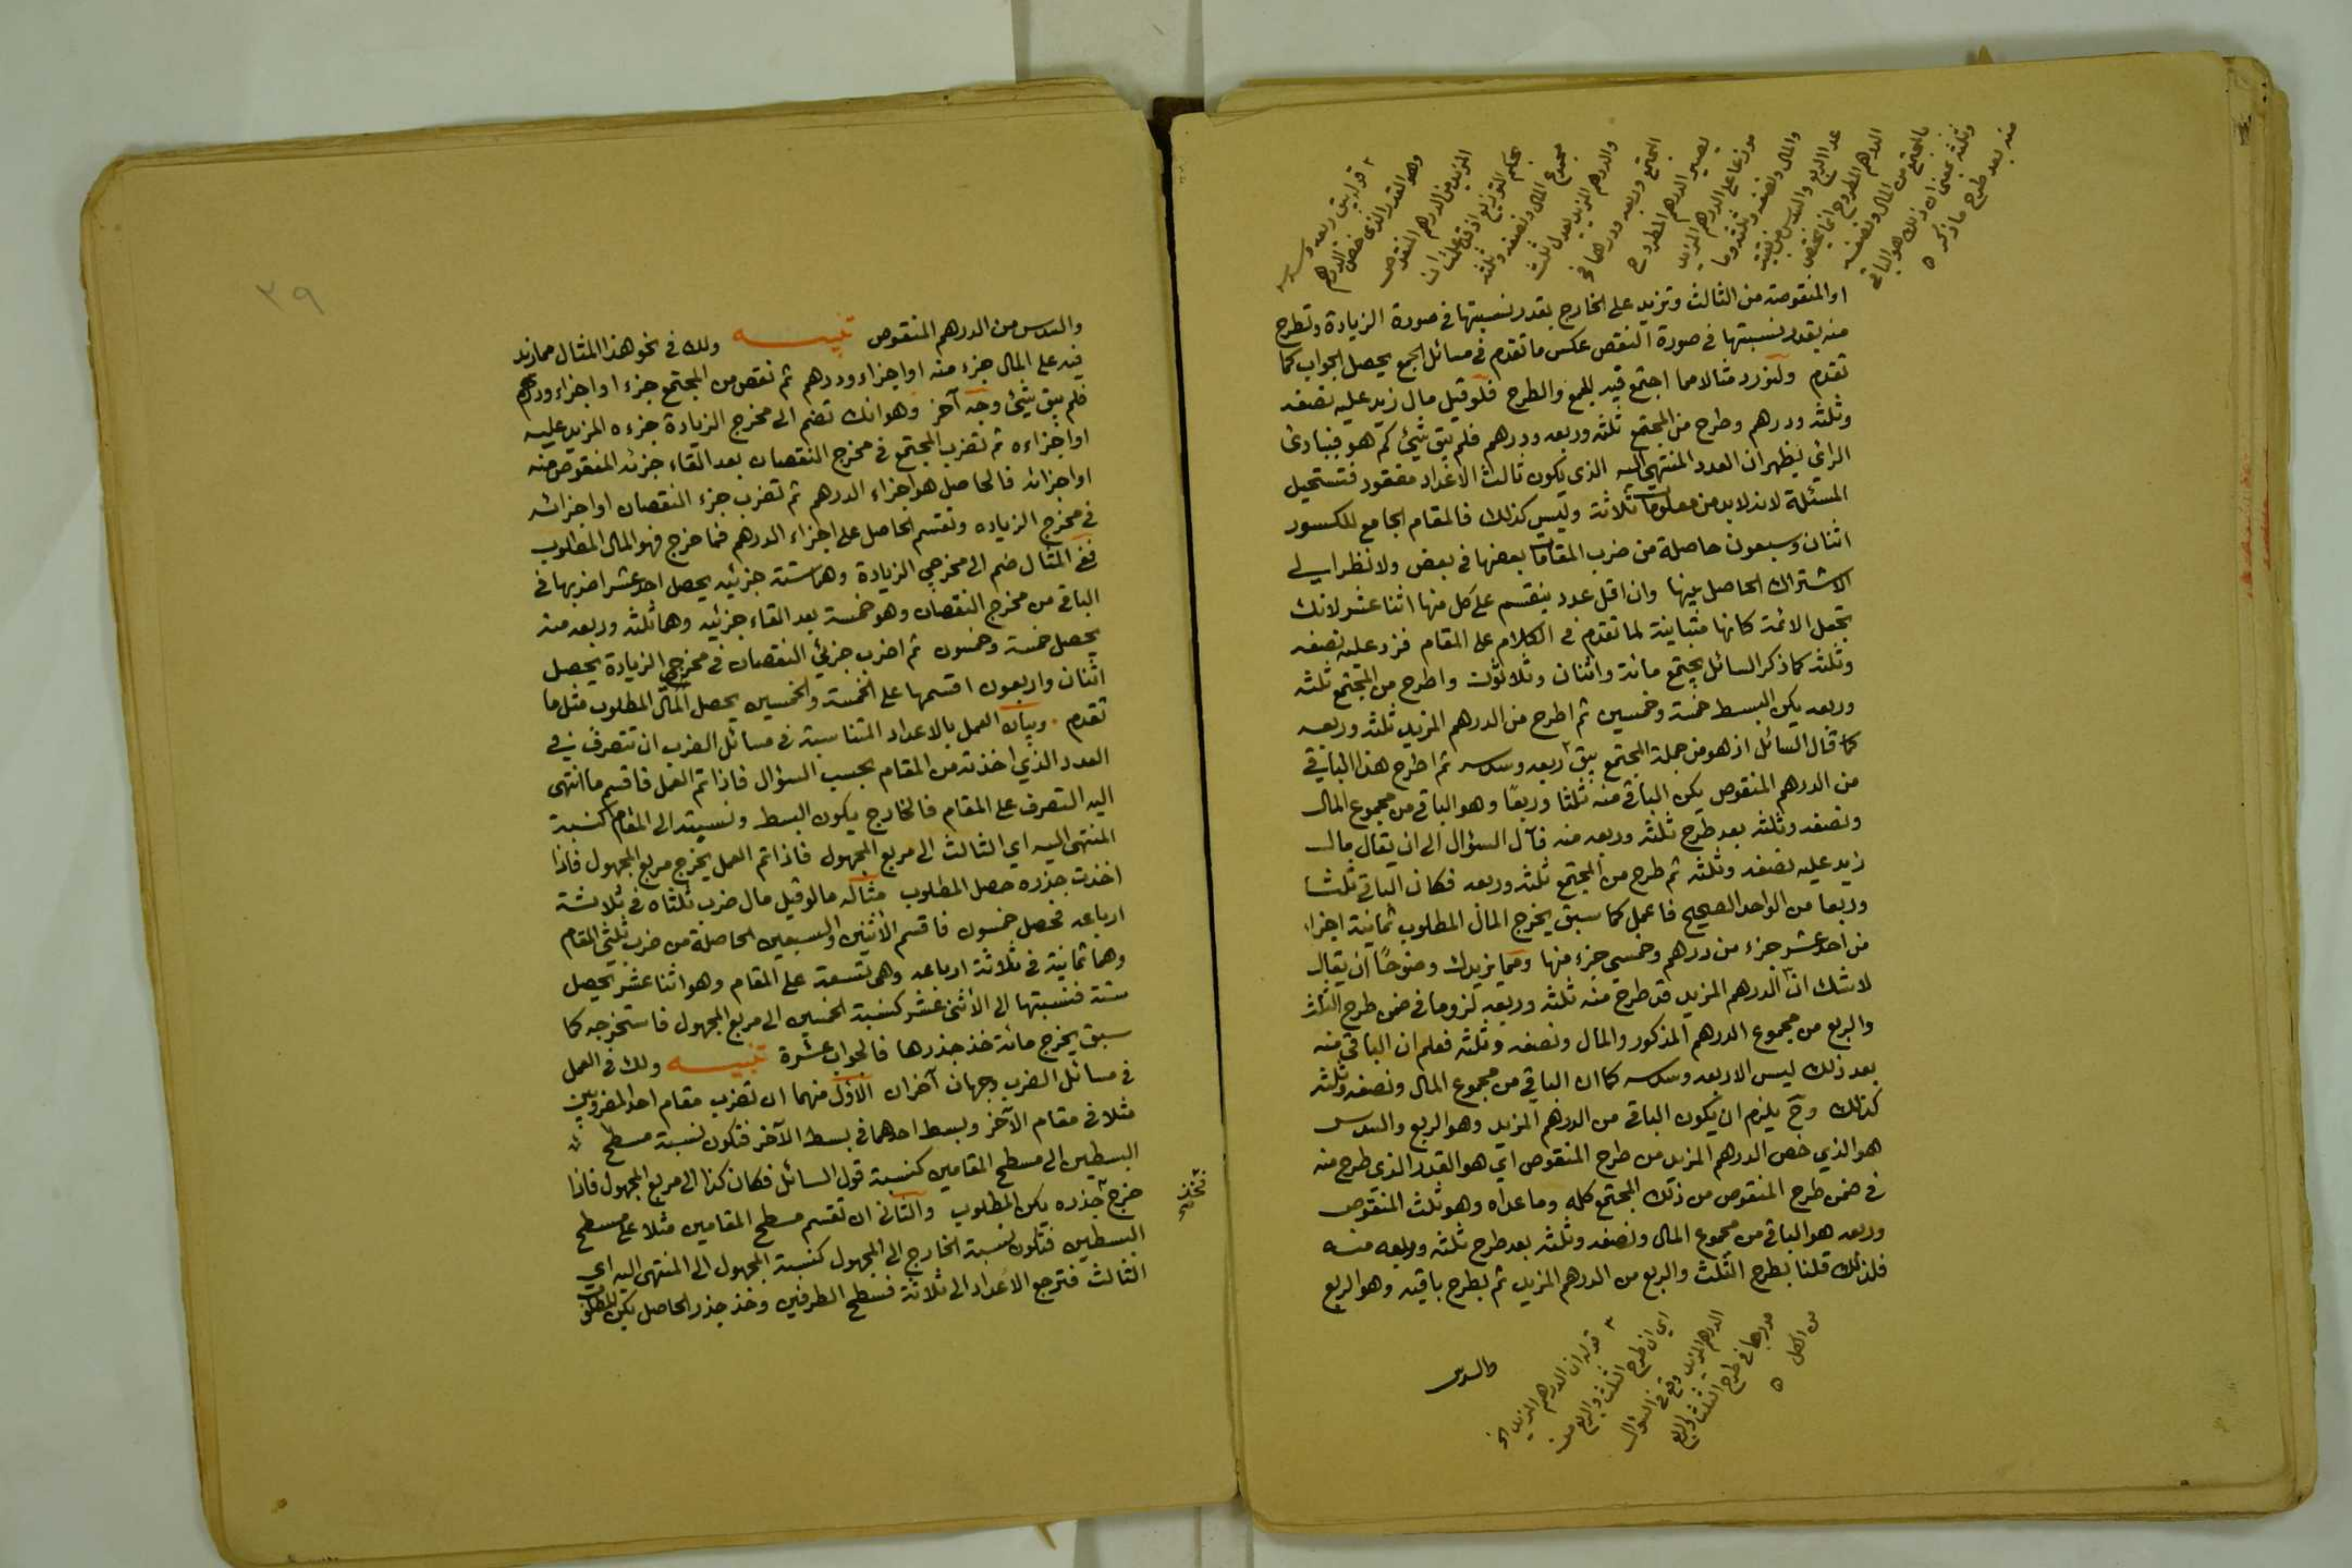 او المنقوصة من الثالث وتزيد على الخارج بقدر نسبتها في صورة الزيادة وتطرح
منه بقدر نسبتها في صورة النقص عكس ما تقدم في مسائل الجمع يحصل الجواب كما
تقدم ولنورد مثالا مما اجتمع فيه الجمع والطرح فلو قيل مال زيد عليه نصفه
وثلثه ودرهم وطرح من المجتمع ثلثه وربعه ودرهم فلم يبق شئ كم هو فبادئ
الرائ يظهر ان العدد المنتهي اليه الذي يكون ثالث الاعداد مفقود فتستحيل
المسئلة لانه لابد من معلومات ثلاثة وليس كذلك فالمقام الجامع للكسور
اثنان وسبعون حاصلة من ضرب المقامات بعضها في بعض ولا نظر الى
الاشتراك الحاصل بينها وان اقل عدد ينقسم على كل منها اثنا عشر لانك
تجعل الائمة كانها متباينة لما تقدم في الكلام على المقام فزد عليه نصفه
وثلثه كما ذكر السائل يجتمع مائة واثنان وثلاثون واطرح من المجتمع ثلثه
وربعه يكن البسط خمسة وخمسين ثم اطرح من الدرهم المزيد ثلثه وربعه
كما قال السائل اذ هو من جملة المجتمع يبق ربعه وسدسه ثم اطرح هذا الباقي
من الدرهم المنقوص يكن الباقي منه ثلثا وربعا وهو الباقي من مجموع المال
ونصفه وثلثه بعد طرح ثلثه وربعه منه فآل السؤال الى ان يقال مال
زيد عليه نصفه وثلثه ثم طرح من المجتمع ثلثه وربعه فكان الباقي ثلثا
وربعا من الواحد الصحيح فاعمل كما سبق يخرج المال المطلوب ثمانية اجزاء
من احد عشر جزء من درهم وخمسي جزء منها ومما يزيدك وضوحا ان يقال
لاشك ان الدرهم المزيد قد طرح منه ثلثه وربعه لزوما في ضمن طرح الثلث
والربع من مجموع الدرهم المذكور والمال ونصفه وثلثه فعلم ان الباقي منه
بعد ذلك ليس الا ربعه وسدسه كما ان الباقي من مجموع المال ونصفه وثلثه
كذلك وح يلزم ان يكون الباقي من الدرهم المزيد وهو الربع والسدس
هو الذي خص الدرهم المزيد من طرح المنقوص اي هو القدر الذي طرح منه
في ضمن طرح المنقوص من ذلك المجتمع كله وما عداه وهو ثلث المنقوص
وربعه هو الباقي من مجموع المال ونصفه وثلثه بعد طرح ثلثه وربعه منه
فلذلك قلنا بطرح الثلث والربع من الدرهم المزيد ثم بطرح باقيه وهو الربع
والسدس
٢ قوله يبق ربعه وسدسه
وهو القدر الذي خص الدرهم
المزيد من الدرهم المنقوص
بحكم التوزيع
مجموع المال ونصفه وثلثه
والدرهم المزيد يعدل ثلث
المجتمع وربعه ودرهما
يصير الدرهم المطروح
موزعا على الدرهم المزيد
والمال ونصفه وثلثه وما
عدا الربع والسدس من بقية
الدرهم المطروح انما يختص
ما اجتمع من المال ونصفه
وثلثه بمعنى ان ذلك هو الباقي
منه بعد طرح ما ذكر ٥
٣ قوله ان الدرهم المزيد الخ
اي ان طرح الثلث والربع من
الدرهم المزيد وقع في السؤال
مدرجا في طرح الثلث والربع
من الكل ٥
٣٩
والسدس من الدرهم المنقوص تنبيه ولك في نحو هذا المثال مما زيد
فيه على المال جزء منه او اجزاء ودرهم ثم نقص من المجتمع جزء او اجزاء ودرهم
فلم يبق شئ وجه آخر وهو انك تضم الى مخرج الزيادة جزءه المزيد عليه
او اجزاءه ثم تضرب المجتمع في مخرج النقصان بعد القاء جزئه المنقوص منه
او اجزائه فالحاصل هو اجزاء الدرهم ثم تضرب جزء النقصان او اجزائه
في مخرج الزيادة وتقسم الحاصل على اجزاء الدرهم فما خرج فهو المال المطلوب
ففي المثال ضم الى مخرجي الزيادة وهما ستة جزئيه يحصل احد عشر اضربها في
الباقي من مخرج النقصان وهو خمسة بعد القاء جزئيه وهما ثلثه وربعه منه
يحصل خمسة وخمسون ثم اضرب جزئي النقصان في مخرجي الزيادة يحصل
اثنان واربعون اقسمها على الخمسة والخمسين يحصل المال المطلوب مثل ما
تقدم وبيان العمل بالاعداد المتناسبة في مسائل الضرب ان تتصرف في
العدد الذي اخذته من المقام بحسب السؤال فاذا تم العمل فاقسم ما انتهى
اليه التصرف على المقام فالخارج يكون البسط ونسبته الى المقام كنسبة
المنتهى اليه اي الثالث الى مربع المجهول فاذا تم العمل يخرج مربع المجهول فاذا
اخذت جذره حصل المطلوب مثاله ما لو قيل مال ضرب ثلثاه في ثلاثة
ارباعه فحصل خمسون فاقسم الاثنين والسبعين الحاصلة من ضرب ثلثي المقام
وهما ثمانية في ثلاثة ارباعه وهي تسعة على المقام وهو اثنا عشر يحصل
ستة فنسبتها الى الاثنى عشر كنسبة الخمسين الى مربع المجهول فاستخرجه كما
سبق يخرج مائة خذ جذرها فالجواب عشرة تنبيه ولك في العمل
في مسائل الضرب وجهان آخران الاول منهما ان تضرب مقام احد المضروبين
مثلا في مقام الآخر وبسط احدهما في بسط الآخر فتكون نسبة مسطح
البسطين الى مسطح المقامين كنسبة قول السائل فكان كذا الى مربع المجهول فاذا
خرج جذره يكن المطلوب والثاني ان تقسم مسطح المقامين مثلا على مسطح
البسطين فتكون نسبة الخارج الى المجهول كنسبة المجهول الى المنتهى اليه اي
الثالث فترجع الاعداد الى ثلاثة فسطح الطرفين وخذ جذر الحاصل يكن المطلوب